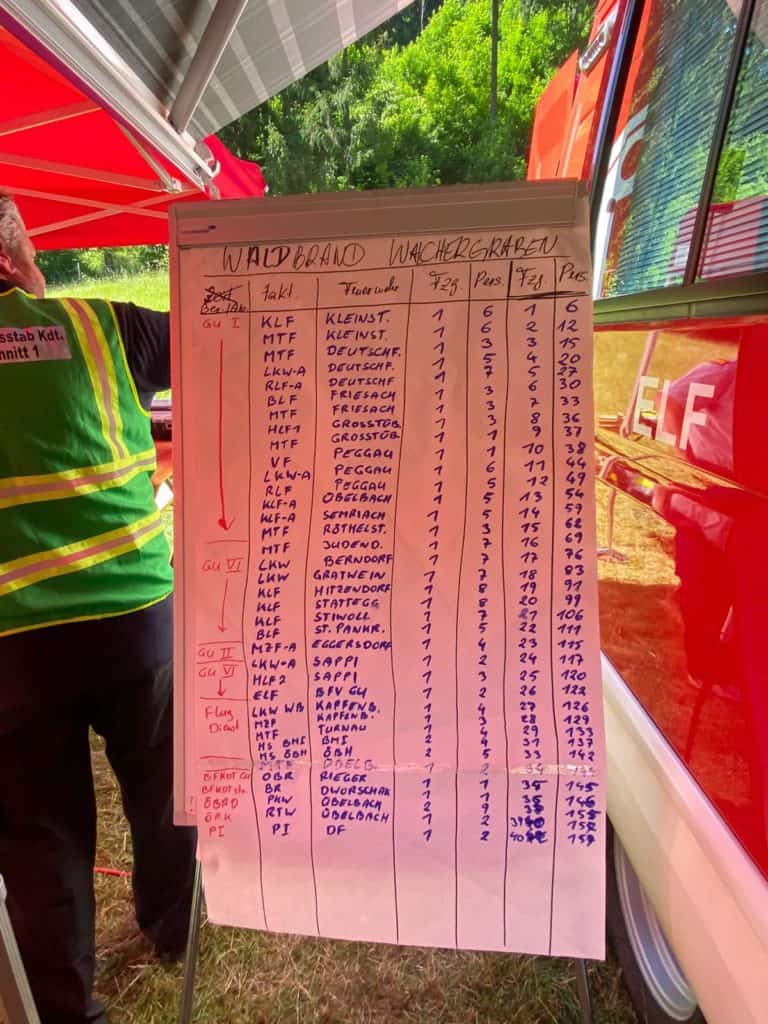 WALDBRAND WACHERGRABEN
Ber./Abs. Takt. Feuerwehr Fzg. Pers. Fzg. Pers.
GU I KLF KLEINST. 1 6 1 6
MTF KLEINST. 1 6 2 12
MTF DEUTSCHF. 1 3 3 15
LKW-A DEUTSCHF. 1 5 4 20
RLF-A DEUTSCHF 1 7 5 27
BLF FRIESACH 1 3 6 30
MTF FRIESACH 1 3 7 33
HLF1 GROSSTÜB. 1 3 8 36
MTF GROSSTÜB. 1 1 9 37
VF PEGGAU 1 1 10 38
LKW-A PEGGAU 1 6 11 44
RLF PEGGAU 1 5 12 49
KLF-A ÜBELBACH 1 5 13 54
KLF-A SEMRIACH 1 5 14 59
MTF RÖTHELST. 1 3 15 62
MTF JUDEND. 1 7 16 69
GU VI LKW BERNDORF 1 7 17 76
LKW GRATWEIN 1 7 18 83
KLF HITZENDORF 1 8 19 91
KLF STATTEGG 1 8 20 99
KLF STIWOLL 1 7 21 106
BLF ST. PANKR. 1 5 22 111
GU II MZF-A EGGERSDORF 1 4 23 115
GU VI LKW-A SAPPI 1 2 24 117
HLF2 SAPPI 1 3 25 120
ELF BFV GU 1 2 26 122
Flug Dienst LKW WB KAPFENB. 1 4 27 126
MZF KAPFENB. 1 3 28 129
MTF TURNAU 1 4 29 133
HS BMI BMI 2 4 31 137
HS ÖBH ÖBH 2 5 33 142
MTF ÜBELB. 1 2 34
BFKDT GU OBR RIEGER 1 1 35 145
BFKDT BR DWORSCHAK 1 1 146
ÖBRD PKW ÜBELBACH 1
ÖRK RTW ÜBELBACH 2 9
PI DF 1 2 40
sstab Kdt.
nnitt 1
ELF